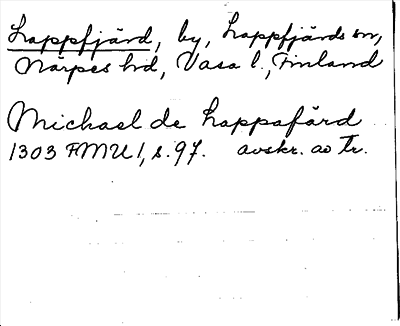 Lappfjärd, by, Lappfjärds sn,
Närpes hd, Vasa l., Finland
Michael de Lappafärd
1303 FMU 1, s. 97. avskr. av Tr.